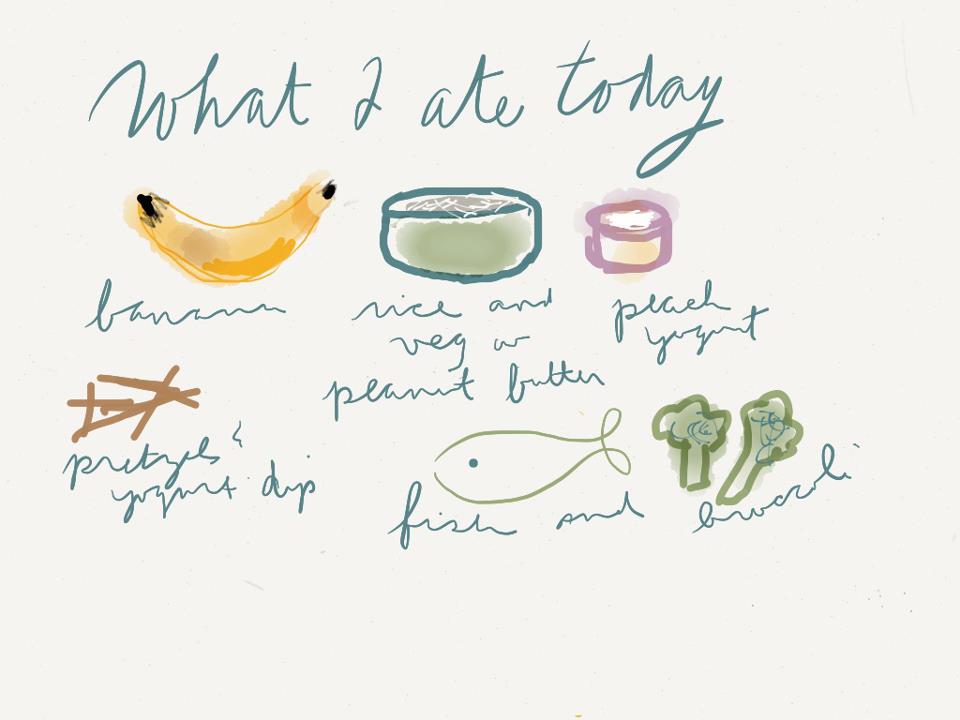 What I ate today
banana
rice and
veg w
peanut butter
peach
yogurt
pretzels &
yogurt dip
fish and
broccoli